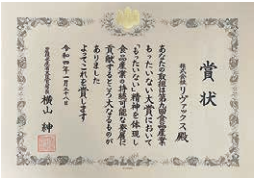 賞状
株式会社リヴァックス殿
あなたの取組は第九回食品産業
もったいない大賞において
「もったいない」精神を体現し
食品産業の持続可能な発展に
貢献するところ大なるものが
ありました
よってこれを賞します
令和四年一月二十八日
横山 紳